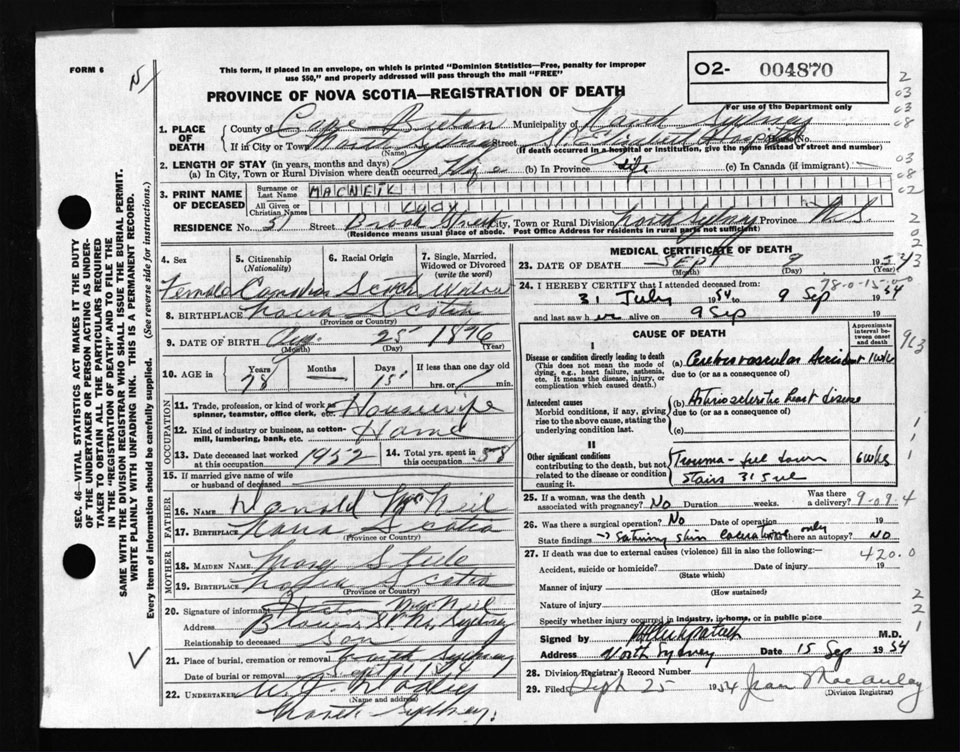 FORM 6
N
This form, if placed in an envelope, on which is printed "Dominion Statistics—Free, penalty for improper
use $50," and properly addressed will pass through the mail "FREE"
02- 004870
For use of the Department only
PROVINCE OF NOVA SCOTIA—REGISTRATION OF DEATH
1. PLACE OF DEATH
County of Cape Breton Municipality of North Sydney
If in City or Town North Sydney Street St. Elizabeth Hospital No.
(Name) (If death occurred in a hospital or institution, give the name instead of street and number)
2. LENGTH OF STAY (in years, months and days)
(a) In City, Town or Rural Division where death occurred Life (b) In Province Life (c) In Canada (if immigrant) —
3. PRINT NAME OF DECEASED
Surname or Last Name MACNEIL
All Given or Christian Names LUCY
RESIDENCE No. 51 Street Brook Street City, Town or Rural Division North Sydney Province N.S.
(Residence means usual place of abode. Post Office Address for residents in rural parts not sufficient)
4. Sex 5. Citizenship (Nationality) 6. Racial Origin 7. Single, Married, Widowed or Divorced (write the word)
Female Canadian Scotch Widow
8. BIRTHPLACE Nova Scotia
(Province or Country)
9. DATE OF BIRTH Aug. 25 1876
(Month) (Day) (Year)
10. AGE in Years 78 Months — Days 15 If less than one day hrs. or min.
OCCUPATION
11. Trade, profession, or kind of work as spinner, teamster, office clerk, etc. Housewife
12. Kind of industry or business, as cotton-mill, lumbering, bank, etc. Home
13. Date deceased last worked at this occupation 1952 14. Total yrs. spent in this occupation 58
15. If married give name of wife or husband of deceased
FATHER
16. NAME Donald MacNeil
17. BIRTHPLACE Nova Scotia
(Province or Country)
MOTHER
18. MAIDEN NAME Mary Steele
19. BIRTHPLACE Nova Scotia
(Province or Country)
20. Signature of informant MacNeil
Address St. No. Sydney
Relationship to deceased Son
21. Place of burial, cremation or removal North Sydney
Date of burial or removal Sept
22. UNDERTAKER
(Name and address)
North Sydney.
MEDICAL CERTIFICATE OF DEATH
23. DATE OF DEATH SEPT 9 1954
(Month) (Day) (Year)
24. I HEREBY CERTIFY that I attended deceased from:
31 July 1954 to 9 Sep 1954
and last saw her alive on 9 Sep 19
CAUSE OF DEATH
Approximate interval between onset and death
I
Disease or condition directly leading to death
(This does not mean the mode of dying, e.g., heart failure, asthenia, etc. It means the disease, injury, or complication which caused death.)
(a) Cerebrovascular Accident 1 wk
due to (or as a consequence)
Antecedent causes
Morbid conditions, if any, giving rise to the above cause, stating the underlying condition last.
(b) Arteriosclerotic heart disease
due to (or as a consequence)
(c)
II
Other significant conditions
contributing to the death, but not related to the disease or condition causing it.
Trauma - fell down 6 wks
Stairs 31 Jul
25. If a woman, was the death associated with pregnancy? NO Duration weeks. Was there a delivery?
26. Was there a surgical operation? No Date of operation 19
State findings → Suturing skin lacerations only Was there an autopsy? NO
27. If death was due to external causes (violence) fill in also the following:—
Accident, suicide or homicide? Date of injury 19
(State which)
Manner of injury
(How sustained)
Nature of injury
Specify whether injury occurred in industry, in home, or in public place
Signed by M.D.
Address North Sydney Date 15 Sep 1954
28. Division Registrar's Record Number
29. Filed Sept 25 1954 Jean Macaulay
(Division Registrar)
SEC. 46—VITAL STATISTICS ACT MAKES IT THE DUTY
OF THE UNDERTAKER OR PERSON ACTING AS UNDERTAKER
TO OBTAIN ALL THE PARTICULARS REQUIRED
IN THE "REGISTRATION OF DEATH" AND TO FILE THE
SAME WITH THE DIVISION REGISTRAR WHO SHALL ISSUE THE BURIAL PERMIT.
WRITE PLAINLY WITH UNFADING INK. THIS IS A PERMANENT RECORD.
Every item of information should be carefully supplied. (See reverse side for instructions.)
420.0